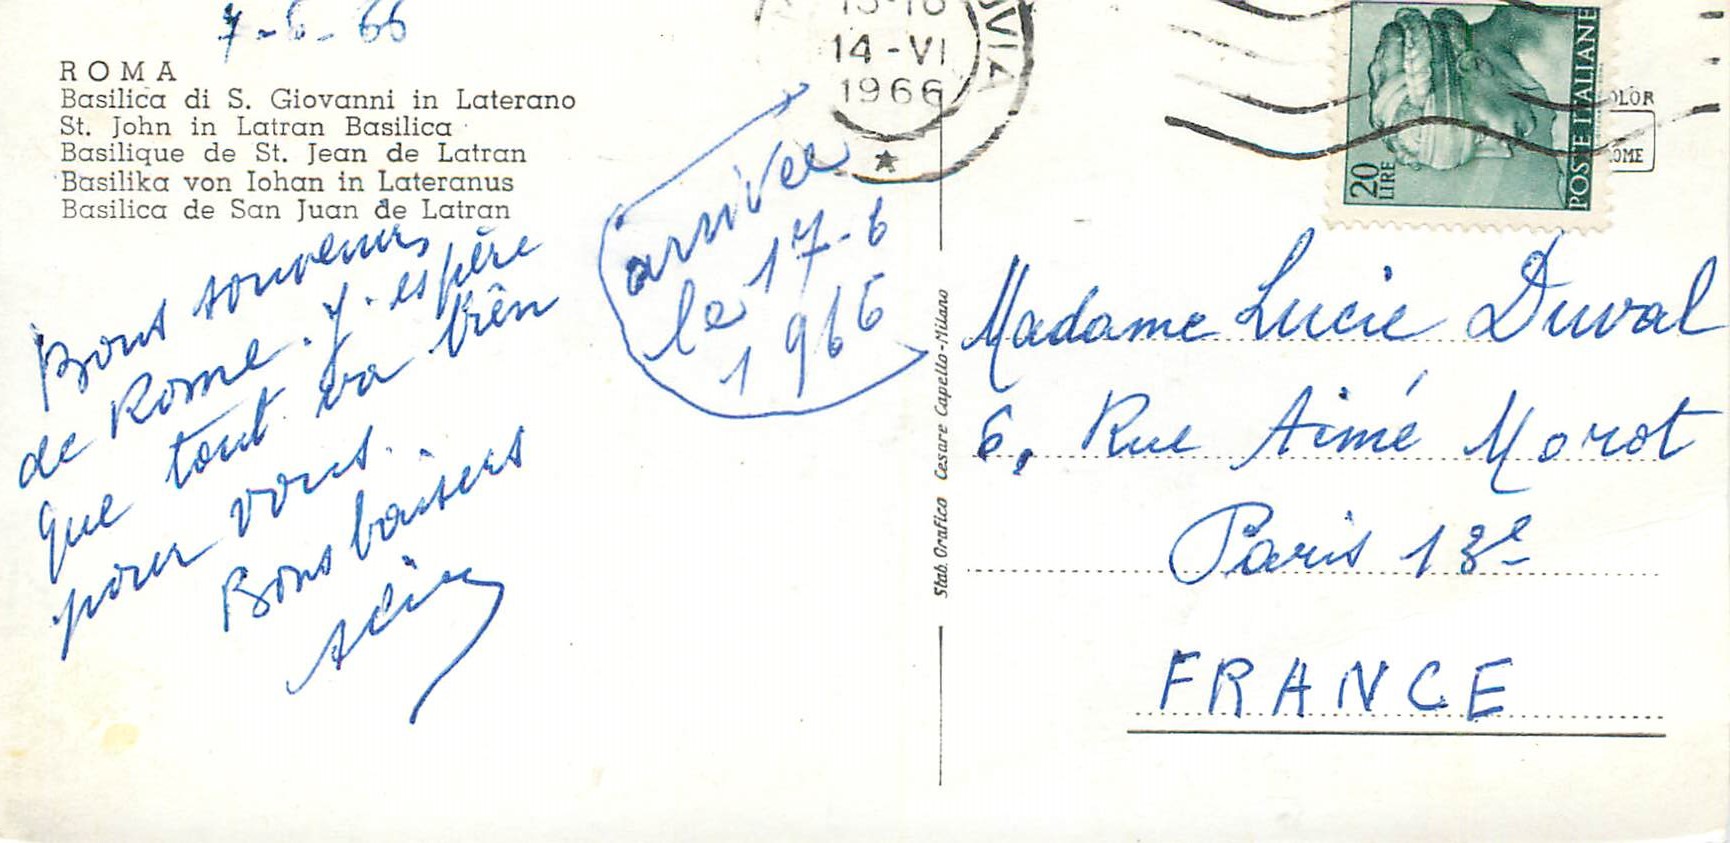 7-6-66
ROMA
Basilica di S. Giovanni in Laterano
St. John in Latran Basilica
Basilique de St. Jean de Latran
Basilika von Iohan in Lateranus
Basilica de San Juan de Latran
Bons souvenirs
de Rome. J'espère
que tout va bien
pour vous.
Bons baisers
arrivée
le 17-6
1966
14-VI
1966
Stab. Grafico Cesare Capello-Milano
20
LIRE
POSTE ITALIANE
Madame Lucie Duval
6, Rue Aimé Morot
Paris 13e
FRANCE